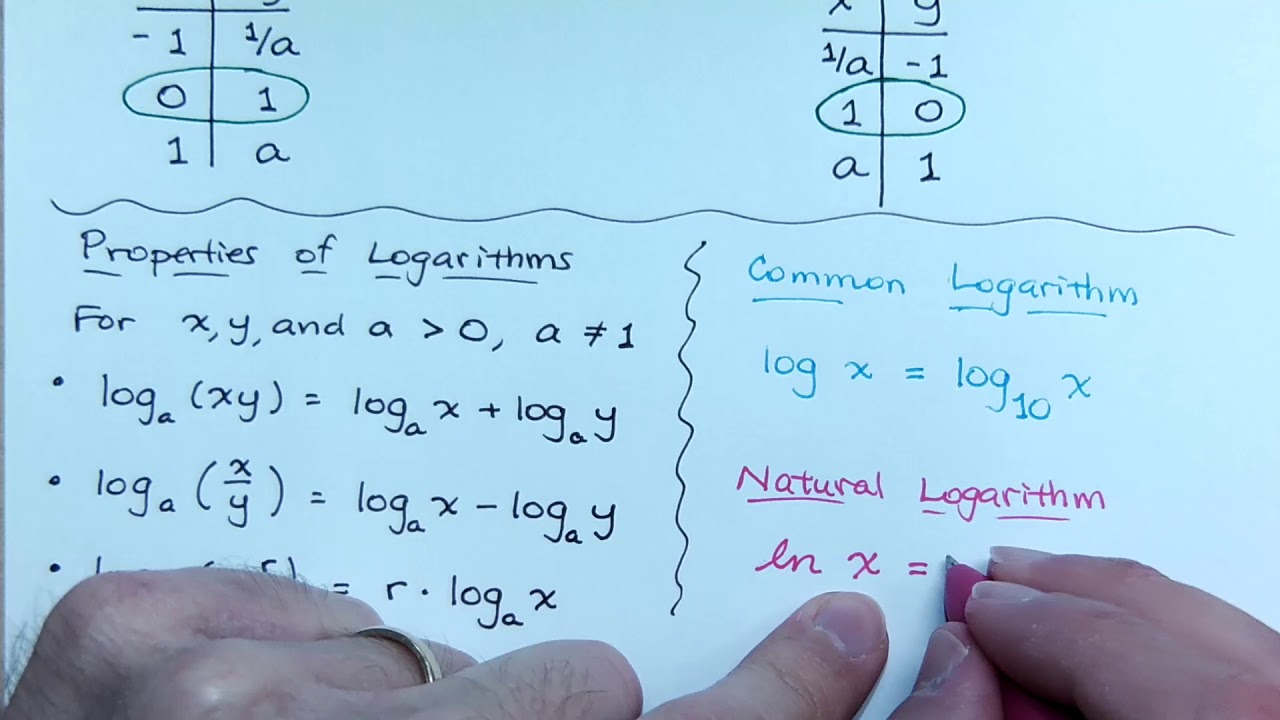 y
-1 1/a
0 1
1 a
x y
1/a -1
1 0
a 1
Properties of Logarithms
For x, y, and a > 0, a ≠ 1
• logₐ (xy) = logₐ x + logₐ y
• logₐ (x/y) = logₐ x - logₐ y
• = r · logₐ x
Common Logarithm
log x = log₁₀ x
Natural Logarithm
ln x =